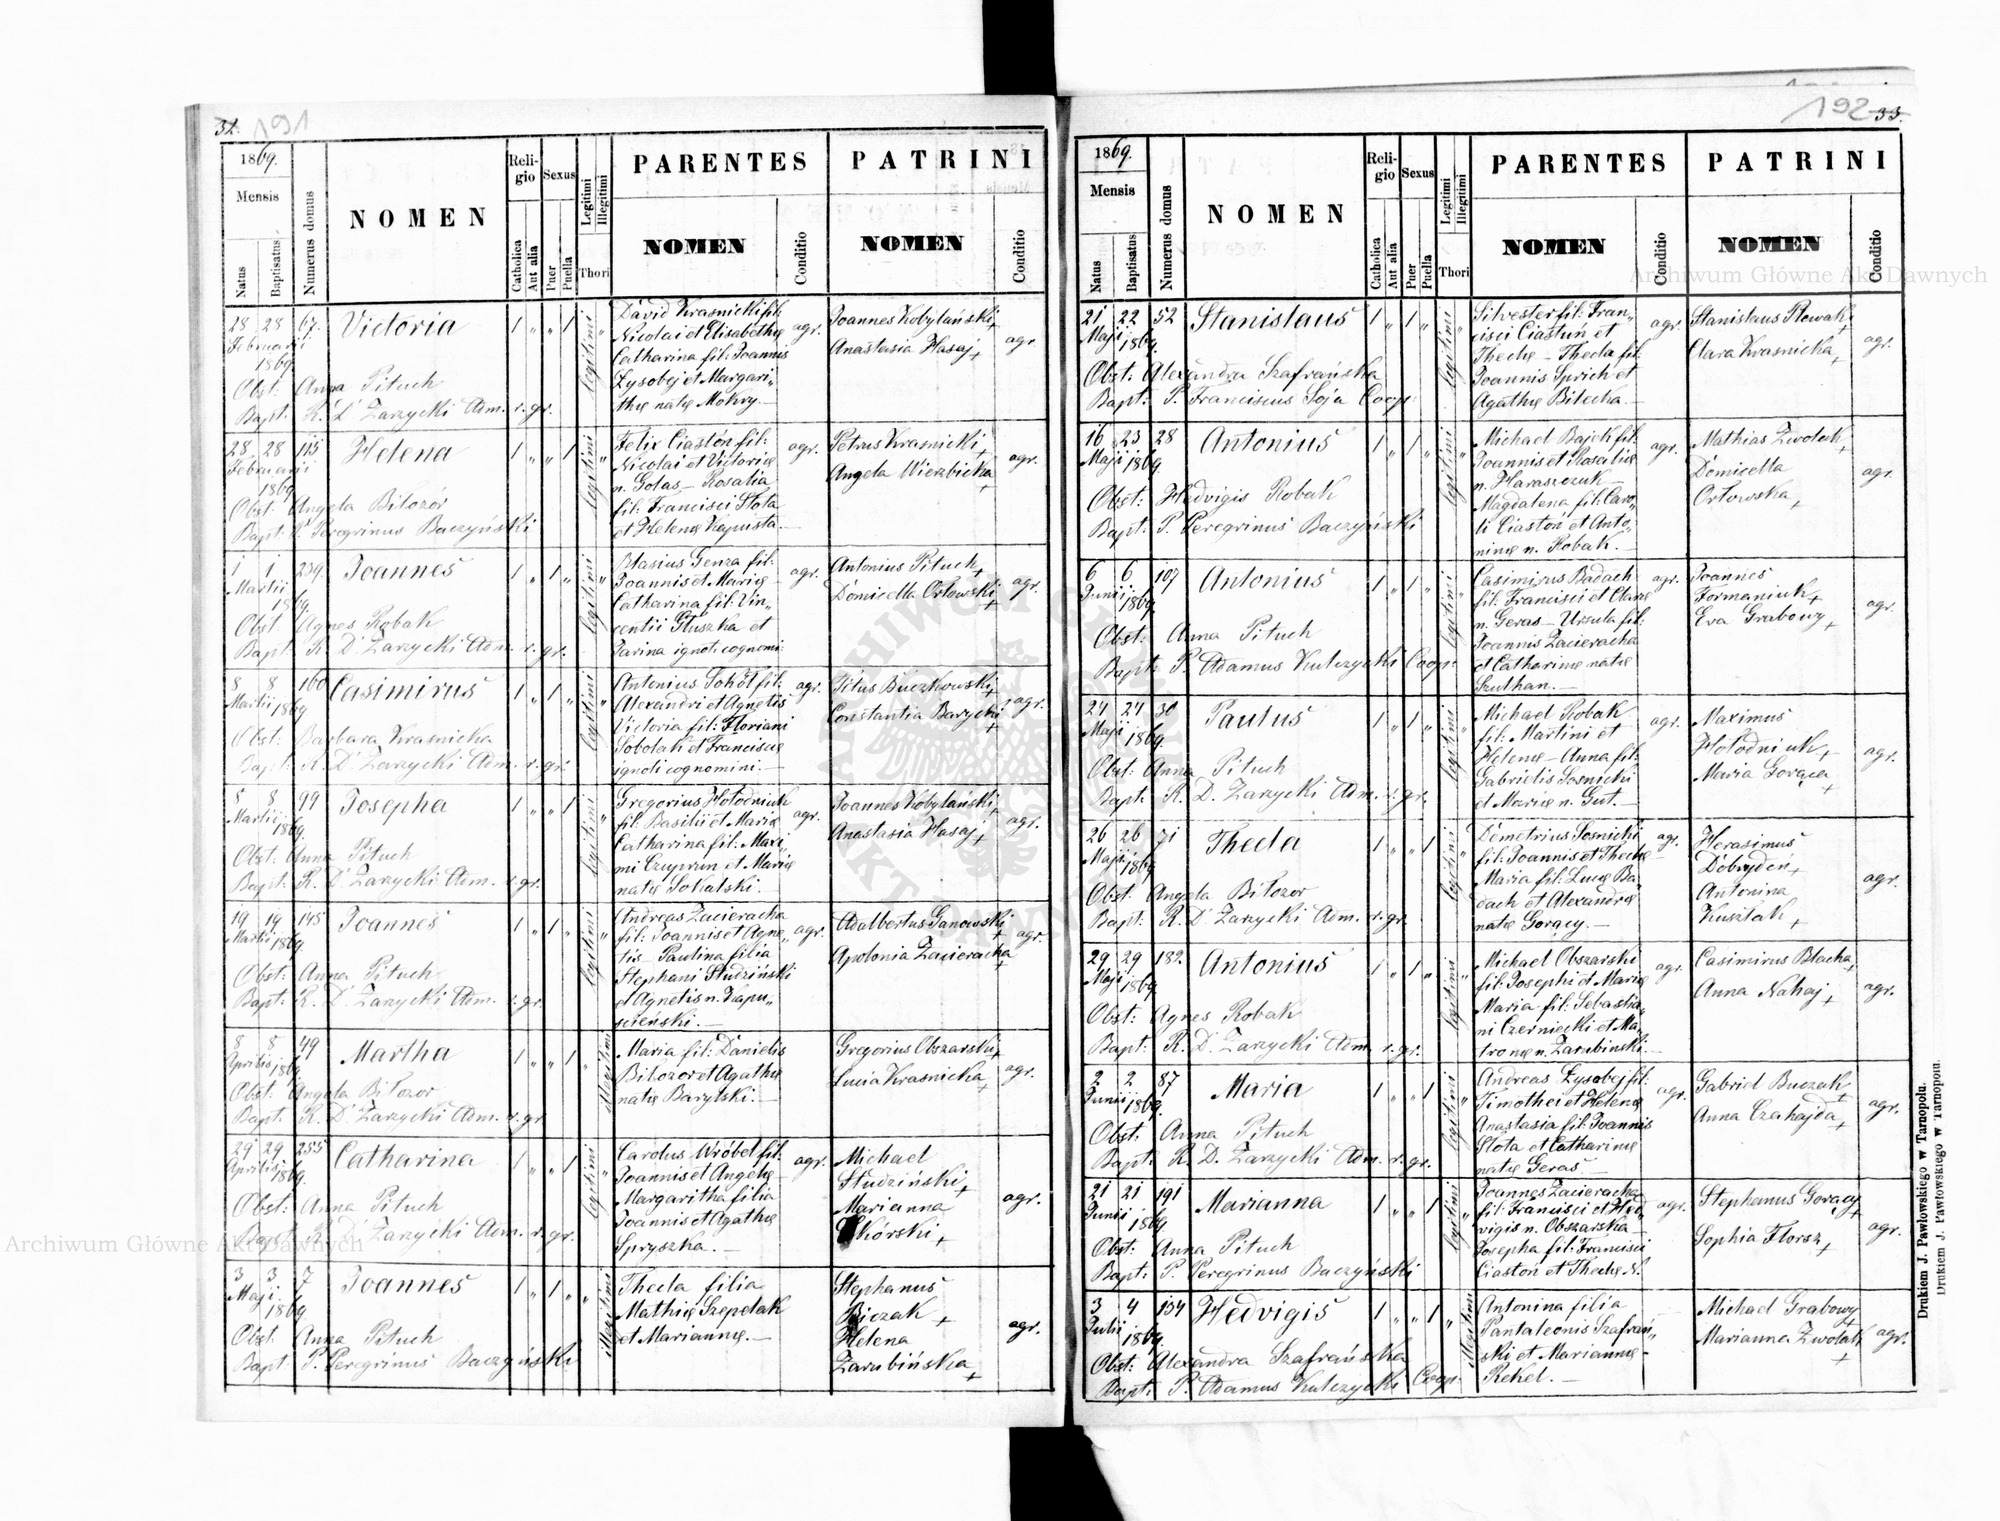 32. 191
1869.
Mensis
Natus
Baptisatus
Numerus domus
NOMEN
Religio
Catholica
Aut alia
Sexus
Puer
Puella
Legitimi
Illegitimi
Thori
PARENTES
NOMEN
Conditio
PATRINI
NOMEN
Conditio
28 28 67. Victoria 1 „ „ 1 legitimi „
Februarii
1869
Obst: Anna Pituch
Bapt: R. D. Zarzycki Adm. r. gr.
David Krasnicki fil:
Nicolai et Elisabethæ
Catharina fil: Joannis
Łysobej et Margari-
thæ natæ Mokry.—
agr.
Joannes Kobylański +
Anastasia Hasaj +
agr.
28 28 115 Helena 1 „ „ 1 legitimi „
Februarii
1869
Obst: Angela Biłozór
Bapt: P. Peregrinus Baczyński
Felix Ciastón fil:
Nicolai et Victoriæ
n. Gołas — Rosalia
fil: Francisci Słota
et Helenæ Kapusta.—
agr.
Petrus Krasnicki +
Angela Wierzbicka +
agr.
1 1 239. Joannes 1 „ 1 „ legitimi „
Martii
1869
Obst: Agnes Robak
Bapt: R. D. Zarzycki Adm. r. gr.
Blasius Genza fil:
Joannis et Mariæ
Catharina fil: Vin-
centii Głuszka et
Parina ignoti cognomi:
agr.
Antonius Pituch +
Domicella Orłowski +
agr.
8 8 160 Casimirus 1 „ 1 „ legitimi „
Martii 1869
Obst: Barbara Krasnicka
Bapt: R. D. Zarzycki Adm. r. gr.
Antonius Sokół fil:
Alexandri et Agnetis
Victoria fil: Floriani
Sobolak et Franciscæ
ignoti cognomini.—
agr.
Titus Buczkowski +
Constantia Barycki +
agr.
8 8 99 Josepha 1 „ „ 1 legitimi „
Martii 1869.
Obst: Anna Pituch
Bapt: R. D. Zarzycki Adm. r. gr.
Gregorius Hołodniuk
fil: Basilii et Mariæ
Catharina fil: Maxi-
mi Czuprun et Mariæ
natæ Sokalski.—
agr.
Joannes Kobylański +
Anastasia Hasaj +
agr.
19 19 145 Joannes 1 „ 1 „ legitimi „
Martii 1869.
Obst: Anna Pituch
Bapt: R. D. Zarzycki Adm. r. gr.
Andreas Zacieracha
fil: Joannis et Agne-
tis — Paulina filia
Stephani Studziński
et Agnetis n. Kapu-
scieński.—
agr.
Adalbertus Janowski +
Apolonia Zacieracha +
agr.
8 8 49 Martha 1 „ „ 1 illegitimi
Aprilis 1869
Obst: Angela Biłozor
Bapt: R. D. Zarzycki Adm. r. gr.
Maria fil: Danielis
Biłozor et Agathæ
natæ Barylski.—
Gregorius Obszarski +
Lucia Krasnicka +
agr.
29 29 255 Catharina 1 „ „ 1 legitimi „
Aprilis 1869.
Obst: Anna Pituch
Bapt: R. D. Zarzycki Adm. r. gr.
Carolus Wróbel fil:
Joannis et Angelæ
Margaritha filia
Joannis et Agathæ
Spryszka.—
agr.
Michael
Studziński +
Marianna
Skórski +
agr.
3 3 7 Joannes 1 „ 1 „ „ illegitimi
Maji 1869
Obst: Anna Pituch
Bapt: P. Peregrinus Baczyński
Thecla filia
Mathiæ Szepelak
et Mariannæ.—
Stephanus
Biczak +
Helena
Zarubińska +
agr.
192 33.
1869.
Mensis
Natus
Baptisatus
Numerus domus
NOMEN
Religio
Catholica
Aut alia
Sexus
Puer
Puella
Legitimi
Illegitimi
Thori
PARENTES
NOMEN
Conditio
PATRINI
NOMEN
Conditio
21 22 52 Stanislaus 1 „ 1 „ legitimi „
Maji 1869.
Obst: Alexandra Szafrańska
Bapt: P. Franciscus Soja Coop:
Silvester fil: Fran-
cisci Ciastuń et
Theclæ — Thecla fil:
Joannis Sprich et
Agathæ Bilecka.—
agr.
Stanislaus Nowak +
Clara Krasnicka +
agr.
16 23 28 Antonius 1 „ 1 „ legitimi „
Maji 1869
Obst: Hedvigis Robak
Bapt: P. Peregrinus Baczyński
Michael Bajek fil:
Joannis et Rosaliæ
n. Haraszczuk—
Magdalena fil: Caro-
li Ciastoń et Anto-
ninæ n. Robak.—
agr.
Mathias Zwolak +
Domicella
Orłowska +
agr.
6 6 107 Antonius 1 „ 1 „ legitimi „
Junii 1869
Obst: Anna Pituch
Bapt: P. Adamus Kulczycki Coop:
Casimirus Badach
fil: Francisci et Claræ
n. Geras — Ursula fil:
Joannis Zacieracha
et Catharinæ natæ
Szulhan.—
agr.
Joannes
Formaniuk +
Eva Grabowy +
agr.
24 24 30 Paulus 1 „ 1 „ legitimi „
Maji 1869.
Obst: Anna Pituch
Bapt: R. D. Zarzycki Adm. r. gr.
Michael Robak
fil: Martini et
Helenæ — Anna fil:
Gabrielis Sosnicki
et Mariæ n. Gut.—
agr.
Maximus
Hołodniuk +
Maria Gorąca +
agr.
26 26 71 Thecla 1 „ „ 1 legitimi „
Maji 1869
Obst: Angela Biłozor
Bapt: R. D. Zarzycki Adm. r. gr.
Demetrius Sosnicki
fil: Joannis et Theclæ
Maria fil: Lucæ Ba-
dach et Alexandræ
natæ Gorący.—
agr.
Herasimus
Dobrydeń +
Antonina
Kusztak +
agr.
29 29 182. Antonius 1 „ 1 „ legitimi „
Maji 1869
Obst: Agnes Robak
Bapt: R. D. Zarzycki Adm. r. gr.
Michael Obszarski
fil: Josephi et Mariæ
Maria fil: Sebastia-
ni Czerniecki et Ma-
tronæ n. Zarubinski.—
agr.
Casimirus Blacha +
Anna Nahaj +
agr.
2 2 87 Maria 1 „ „ 1 legitimi „
Junii 1869.
Obst: Anna Pituch
Bapt: R. D. Zarzycki Adm. r. gr.
Andreas Łysobej fil:
Timothei et Helenæ
Anastasia fil: Joannis
Słota et Catharinæ
natæ Geras—
agr.
Gabriel Buczak +
Anna Czahajda +
agr.
21 21 191 Marianna 1 „ „ 1 legitimi „
Junii 1869
Obst: Anna Pituch
Bapt: P. Peregrinus Baczyński
Joannes Zacieracha
fil: Francisci et Hed-
vigis n. Obszarska
Josepha fil: Francisci
Ciastoń et Theclæ N.
agr.
Stephanus Gorący +
Sophia Florsz +
agr.
3 4 154 Hedvigis 1 „ „ 1 „ illegitimi
Julii 1869
Obst: Alexandra Szafrańska
Bapt: P. Adamus Kulczycki Coop:
Antonina filia
Pantaleonis Szafrań-
ski et Mariannæ
Rekel.—
Michael Grabowy +
Marianna Zwolak +
agr.
Drukiem J. Pawłowskiego w Tarnopolu.
Drukiem J. Pawłowskiego w Tarnopolu.
Archiwum Główne Akt Dawnych
Archiwum Główne Akt Dawnych
ARCHIWUM GŁÓWNE AKT DAWNYCH